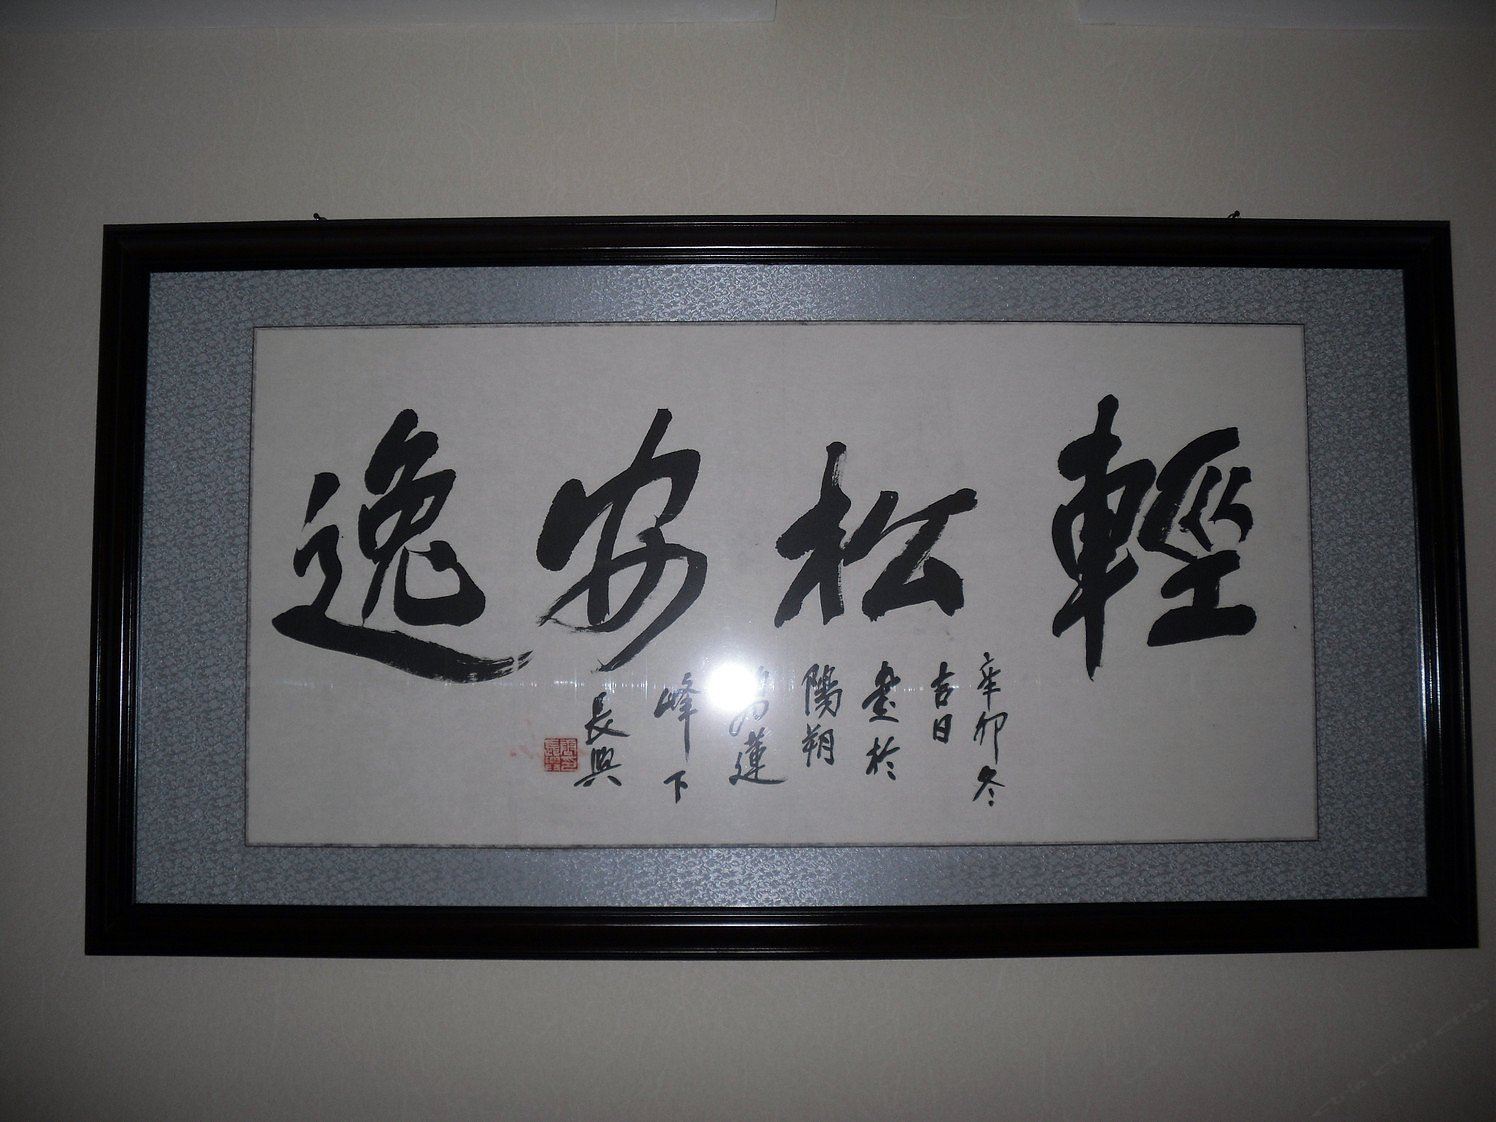 輕松安逸
辛卯冬
吉日
書於
陽朔
蓮
峰下
長興